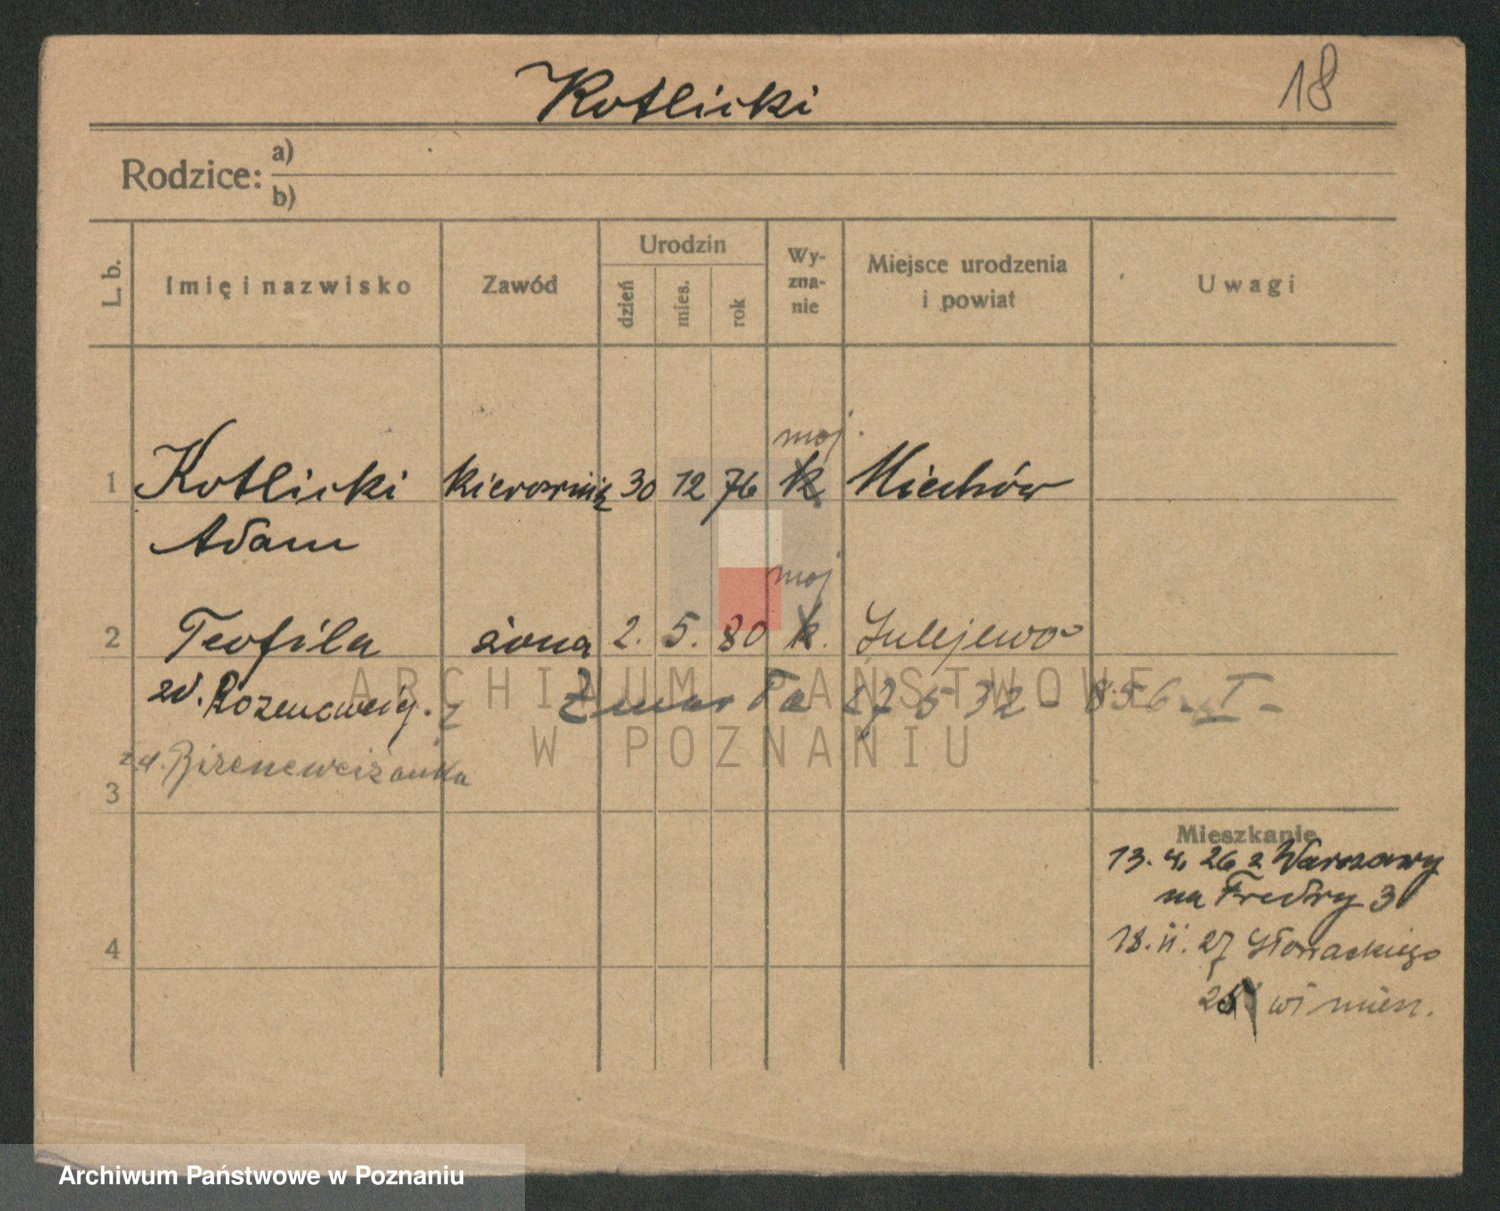 Kotlicki 18
Rodzice: a)
b)
L. b. Imię i nazwisko Zawód Urodzin dzień mies. rok Wy-zna-nie Miejsce urodzenia i powiat Uwagi
moj.
1 Kotlicki kierownik 30 12 76 k Miechów
Adam
moj
2 Teofila żona 2. 5. 80 k. Sulejewo
zd. Rozencweig. z Zmarła 27 5 32 - 856 - I -
z d.
3
Mieszkanie
13. 4. 26 z Warszawy
na Fredry 3
4 18. II. 27 Słowackiego
25
ARCHIWUM PAŃSTWOWE
W POZNANIU
Archiwum Państwowe w Poznaniu